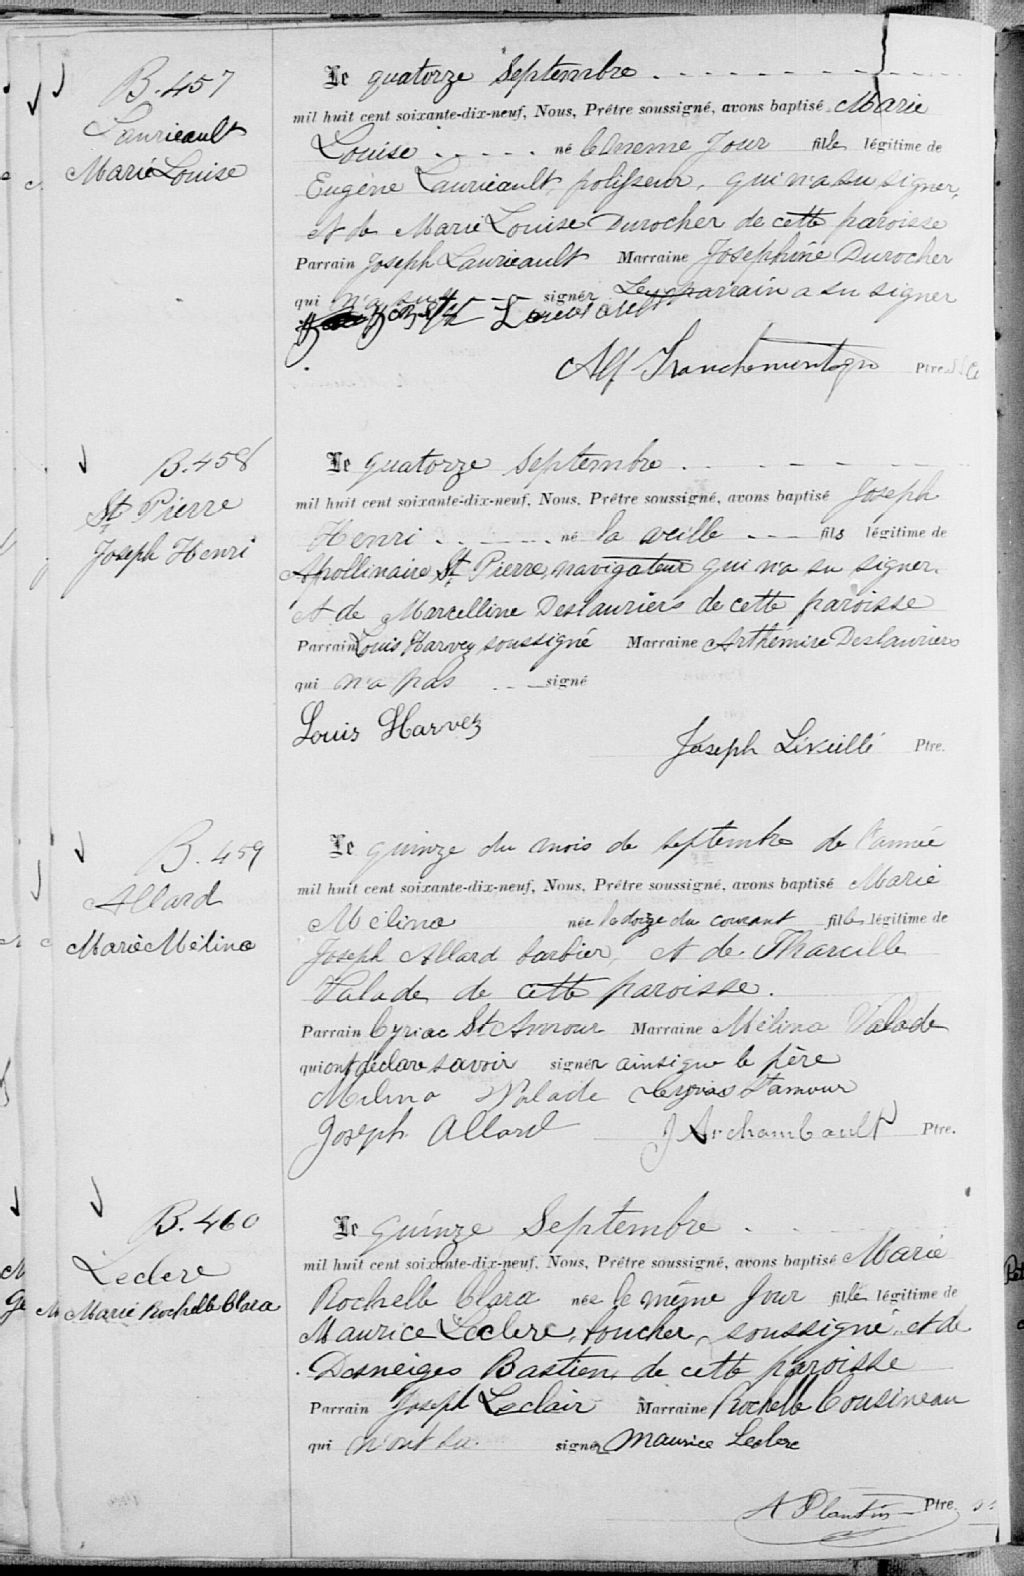 B. 457
Laurieault
Marie Louise
Le quatorze Septembre
mil huit cent soixante-dix-neuf, Nous, Prêtre soussigné, avons baptisé Marie
Louise né le meme Jour fille légitime de
Eugène Laurieault, polisseur, qui n'a su signer,
et de Marie Louise Durocher de cette paroisse
Parrain Joseph Laurieault Marraine Josephine Durocher
qui n'a su signer Le parrain a su signer
Alf Ptre
B. 458
St Pierre
Joseph Henri
Le quatorze Septembre
mil huit cent soixante-dix-neuf, Nous, Prêtre soussigné, avons baptisé Joseph
Henri né la veille fils légitime de
Apollinaire St Pierre, navigateur qui n'a su signer.
et de Marcelline Deslauriers de cette paroisse
Parrain Louis Harvey soussigné Marraine Arthémire Deslauriers
qui n'a pas signé
Louis Harvez
Joseph Léveillé Ptre.
B. 459
Allard
Marie Mélina
Le quinze du mois de septembre de l'année
mil huit cent soixante-dix-neuf, Nous, Prêtre soussigné, avons baptisé Marie
Mélina née le du courant fille légitime de
Joseph Allard barbier, et de Tharcille
Valade de cette paroisse.
Parrain Cyriac St Amour Marraine Mélina Valade
qui ont déclaré savoir signer ainsi que le père
Melina Valade St amour
Joseph Allard J Archambault Ptre.
B. 460
Leclerc
Marie Rochelle Clara
Le quinze Septembre
mil huit cent soixante-dix-neuf, Nous, Prêtre soussigné, avons baptisé Marie
Rochelle Clara née le même Jour fille légitime de
Maurice Leclerc, boucher, soussigné, et de
Desneiges Bastien, de cette paroisse
Parrain Joseph Leclair Marraine Rochelle Cousineau
qui n'ont su signer Maurice Leclerc
A Plantin Ptre.